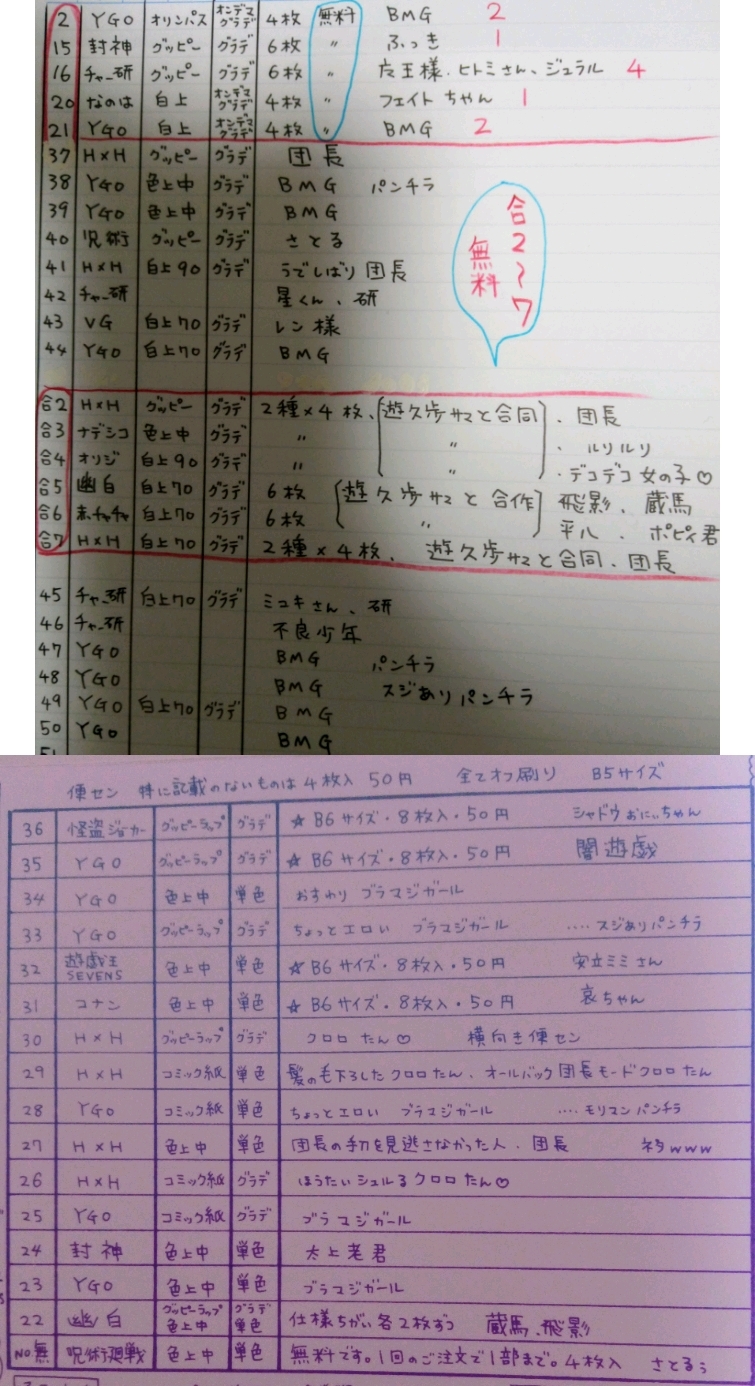 2 YGO オリンパス オンデマグラデ 4枚 無料 BMG 2
15 封神 グッピー グラデ 6枚 〃 ふっき 1
16 チャー研 グッピー グラデ 6枚 〃 魔王様、ヒトミさん、ジュラル 4
20 なのは 白上 オンデマグラデ 4枚 〃 フェイトちゃん 1
21 YGO 白上 オンデマグラデ 4枚 〃 BMG 2
37 H×H グッピー グラデ 団長
38 YGO 色上中 グラデ BMG パンチラ
39 YGO 色上中 グラデ BMG
40 呪術 グッピー グラデ さとる
41 H×H 白上90 グラデ うでしばり団長
42 チャー研 星くん、研
43 VG 白上70 グラデ レン様
44 YGO 白上70 グラデ BMG
合2〜7
無料
合2 H×H グッピー グラデ 2種×4枚、遊久歩サマと合同、団長
合3 ナデシコ 色上中 グラデ 〃 〃 ・ルリルリ
合4 オリジ 白上90 グラデ 〃 〃 ・デコデコ女の子♡
合5 幽白 白上70 グラデ 6枚 遊久歩サマと合作 飛影、蔵馬
合6 赤チャチャ 白上70 グラデ 6枚 〃 平八、ポピィ君
合7 H×H 白上70 グラデ 2種×4枚、遊久歩サマと合同、団長
45 チャー研 白上70 グラデ ミユキさん、研
46 チャー研 不良少年
47 YGO BMG パンチラ
48 YGO BMG スジありパンチラ
49 YGO 白上70 グラデ BMG
50 YGO BMG
便セン 特に記載のないものは4枚入 50円 全てオフ刷り B5サイズ
36 怪盗ジョーカー グッピーラップ グラデ ☆B6サイズ・8枚入・50円 シャドウおにぃちゃん
35 YGO グッピーラップ グラデ ☆B6サイズ・8枚入・50円 闇遊戯
34 YGO 色上中 単色 おすわりブラマジガール
33 YGO グッピーラップ グラデ ちょっとエロい ブラマジガール ‥‥スジありパンチラ
32 遊戯王SEVENS 色上中 単色 ☆B6サイズ・8枚入・50円 安立ミミさん
31 コナン 色上中 単色 ☆B6サイズ・8枚入・50円 哀ちゃん
30 H×H グッピーラップ グラデ クロロたん♡ 横向き便セン
29 H×H コミック紙 単色 髪の毛下ろしたクロロたん、オールバック団長モードクロロたん
28 YGO コミック紙 単色 ちょっとエロい ブラマジガール ‥‥モリマンパンチラ
27 H×H 色上中 単色 団長の手刀を見逃さなかった人、団長 ネタwww
26 H×H コミック紙 グラデ ほうたいシュルるクロロたん♡
25 YGO コミック紙 グラデ ブラマジガール
24 封神 色上中 単色 太上老君
23 YGO 色上中 単色 ブラマジガール
22 幽白 グッピーラップ 色上中 グラデ 単色 仕様ちがい各2枚ずつ 蔵馬、飛影
NO無 呪術廻戦 色上中 単色 無料です。1回のご注文で1部まで。4枚入 さとるぅ